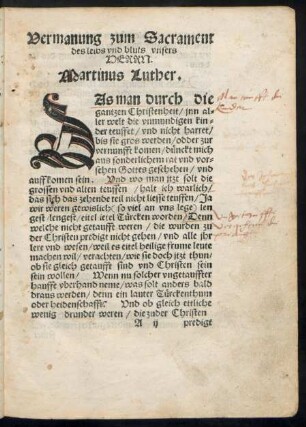 Vermanung zum Sacrament
des leibs vnd bluts vnsers
HERRN.
Martinus Luther.
DAs man durch die
gantzen Christenheit / jnn al-
ler welt die vnmundigen kin-
der teuffet / vnd nicht harret /
bis sie gros werden / odder zur
vernunfft komen / dünckt mich
aus sonderlichem rat vnd vor-
sehen Gottes geschehen / vnd
auffkomen sein. Vnd wo man jtzt solt die
grossen vnd alten teuffen / halt ich warlich /
das sichs das zehende teil nicht liesse teuffen / Ja
wir weren gewislich / so viel an vns lege / len
gest / lengest / eitel eitel Türcken worden / Denn
welche nicht getaufft weren / die wurden zu
der Christen predigt nicht gehen / vnd alle jhr
lere vnd wesen / weil es eitel heilige frume leute
machen wil / verachten / wie sie doch jtzt thun /
ob sie gleich getaufft sind vnd Christen sein
sein wollen / Wenn nu solcher vngetauffter
hauffe vberhand neme / was solt anders bald
draus werden / denn ein lauter Türckenthum
oder heidenschafft: Vnd ob gleich etliche
wenig drunder weren / die zuder Christen
A ij predigt